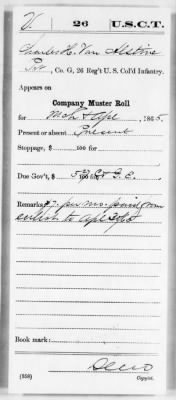 V. 26 U.S.C.T.
Charles H. Van Alstine
Pvt, Co. G, 26 Reg't U. S. Col'd Infantry.
Appears on
Company Muster Roll
for Mch & Apl, 1865.
Present or absent Present
Stoppage, $ 100 for
Due Gov't, $ 100 for
Remarks: $7. per mo. paid from
enlist. to Apl
Book mark:
(358) Copyist.